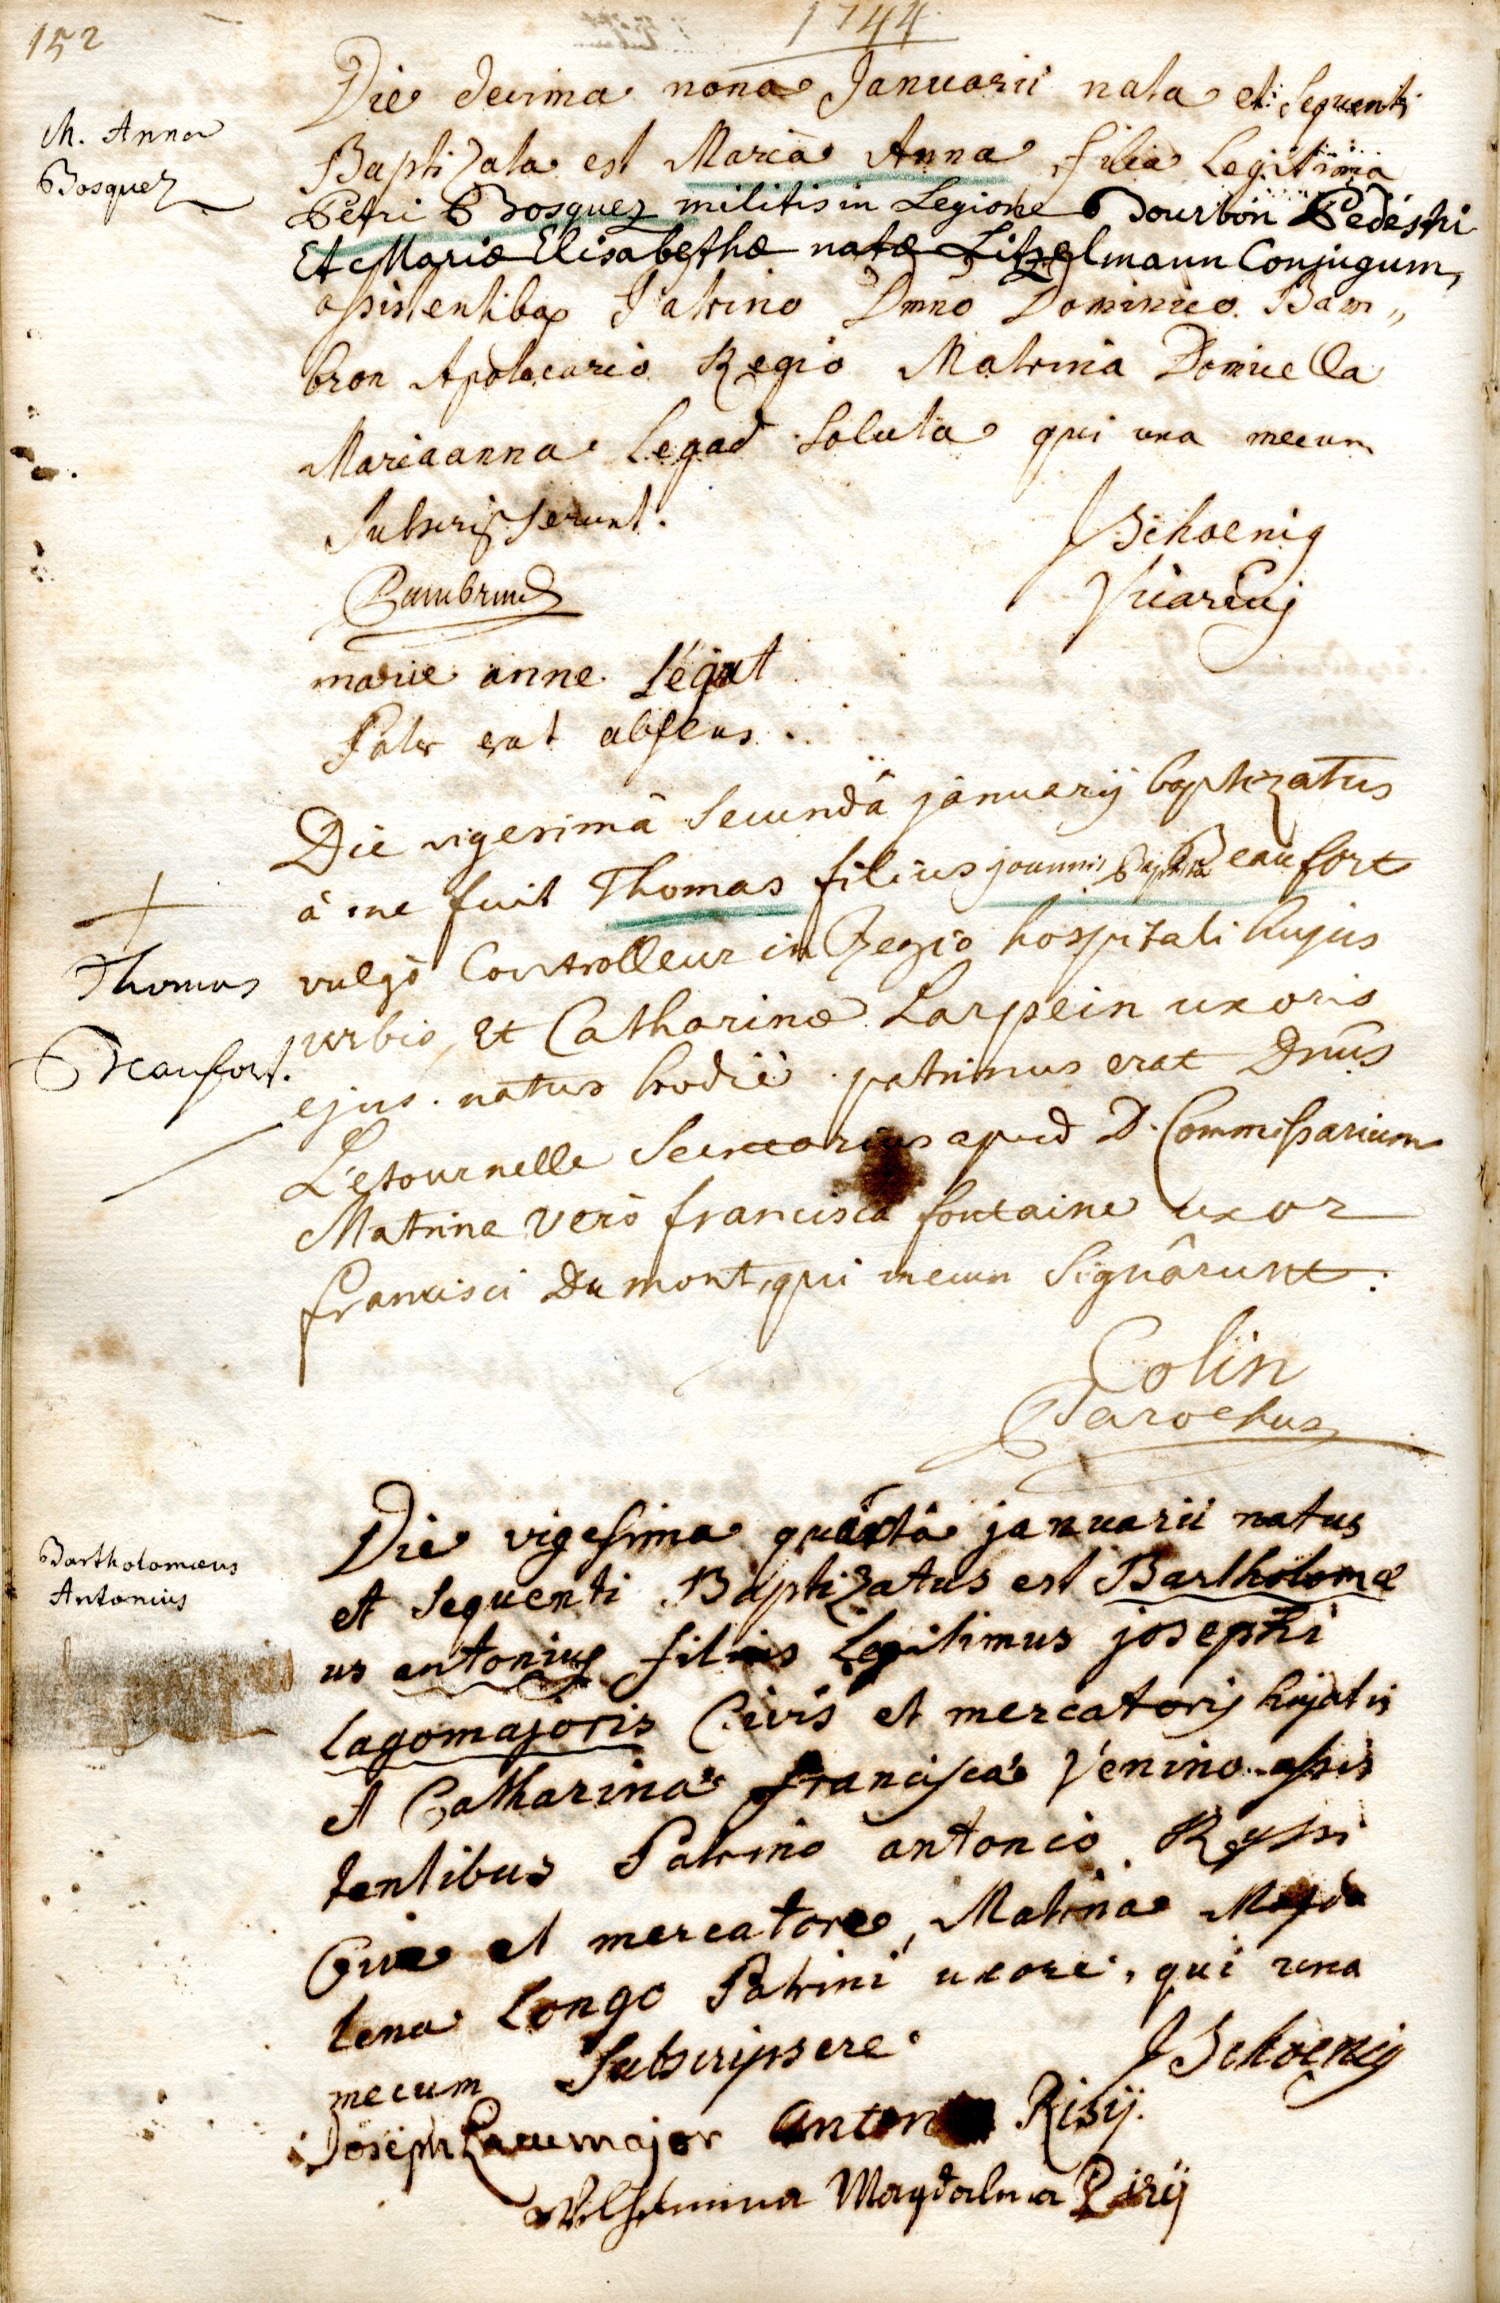 152
1744
M. Anna
Bosquez
Die decima nona Januarii nata et sequenti
Baptizata est Maria Anna filia Legitima
Petri Bosquez militis in Legione Bourbon Pedestri
Et Mariæ Elisabethæ natæ Litzelmann Conjugum,
assistentibq Patrino Dnno Dominico Bam„
bron Apotecario Regio Matrina Domicella
Mariaanna Legad soluta qui una mecum
subscripserunt.
JSchoenig
Vicarius
marie anne Légat
Pater erat absens.
Die vigesimâ secundâ januarij baptizatus
à me fuit Thomas filius joannis Baptistæ Beaufort
Thomas
Beaufort.
vulgò Controlleur in Regio hospitali hujus
urbis, et Catharinæ Larpein uxoris
ejus. natus hodiè. patrinus erat Dnûs
L'etournelle secretarius apud D. Commissarium
Matrina verò francisca fontaine uxor
francisci Du mont, qui mecum signârunt.
Colin
Parochus
Bartholomæus
Antonius
Die vigesima quarta januarii natus
et sequenti Baptizatus est Bartholomæ
us antonius filius Legitimus josephi
Lagomajoris Civis et mercatoris hujatis
et Catharina francisca Venino assis
tentibus Patrino antonio Ryssi
Cive et mercatore, Matrina Magda
lena Longo Patrini uxore, qui una
mecum subscripsere.
JSchoenig
Joseph Lacumajor Anton Risij.
Magdalena Risij